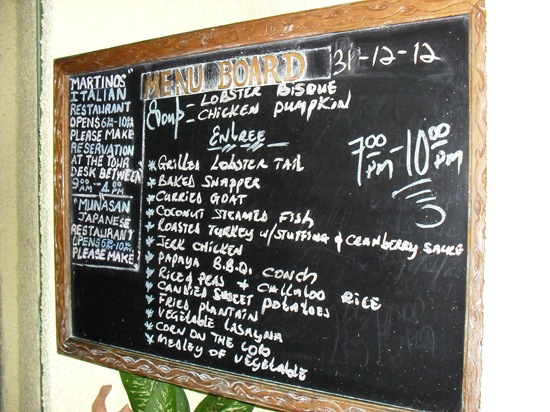 "MARTINOS"
ITALIAN
RESTAURANT
OPENS 6PM-10PM
PLEASE MAKE
RESERVATION
AT THE TOUR
DESK BETWEEN
9:00 AM - 4:00 PM
"MUNASAN
JAPANESE
RESTAURANT
OPENS 6PM-10PM,
PLEASE MAKE
MENU BOARD
31-12-12
Soup = LOBSTER BISQUE
= CHICKEN PUMPKIN
ENTREE
7:00 PM - 10:00 PM
* GRILLED LOBSTER TAIL
* BAKED SNAPPER
* CURRIED GOAT
* COCONUT STEAMED FISH
* ROASTED TURKEY W/STUFFING & CRANBERRY SAUCE
* JERK CHICKEN
* PAPAYA B.B.Q. CONCH
* RICE & PEAS + CALLALOO RICE
* CANDIED SWEET POTATOES
* FRIED PLANTAIN
* VEGETABLE LASAGNA
* CORN ON THE COB
* MEDLEY OF VEGETABLE